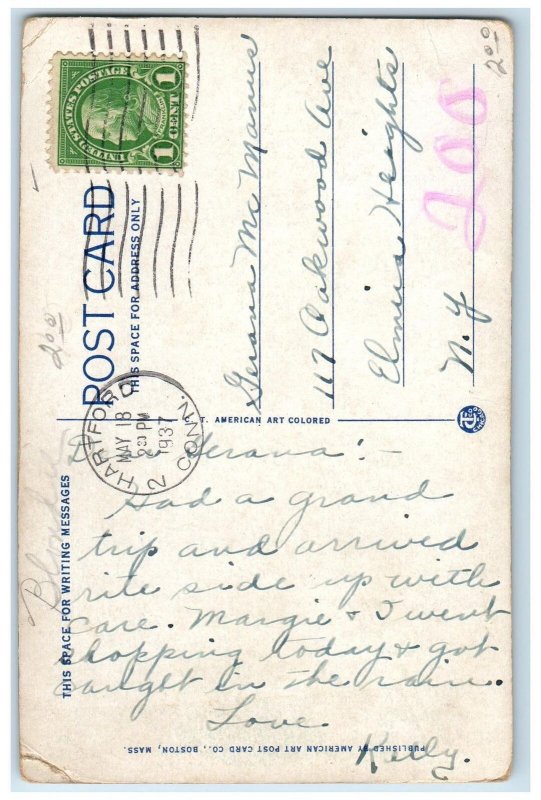 UNITED STATES POSTAGE
1 CENT 1
POST CARD
THIS SPACE FOR ADDRESS ONLY
HARTFORD
MAY 18
2 30 PM
1937
2 CONN.
Gerana Mc Manus
117 Oakwood Ave
Elmira Heights
N. Y
200
2 00
2 00
T. AMERICAN ART COLORED
THIS SPACE FOR WRITING MESSAGES
D Gerana:-
Had a grand
trip and arrived
rite side up with
care. Margie & I went
shopping today & got
caught in the rain.
Love
Kelly.
PUBLISHED BY AMERICAN ART POST CARD CO., BOSTON, MASS.